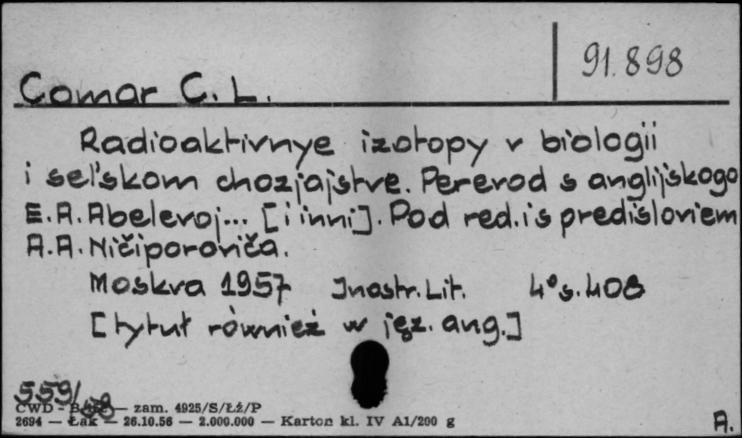 91.898
Comar C. L.
Radioaktivnye izotopy v biologii
i sel'skom chozjajstve. Perevod s anglijskogo
E.A. Abelevoj... [i inni]. Pod red. i s predisloviem
A.A. Ničiporoviča.
Moskva 1957 Inostr. Lit. 4° s. 408
[tytuł również w jęz. ang.]
559/58
CWD - — zam. 4925/S/ŁŻ/P
2694 — Łak — 26.10.56 — 2.000.000 — Karton kl. IV A1/200 g
A.